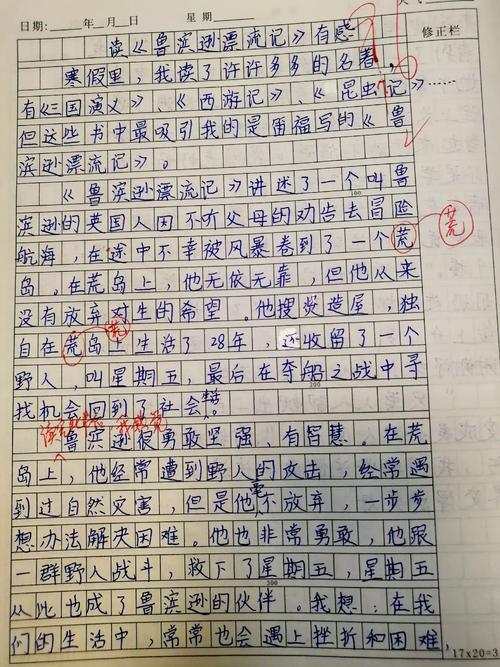 日期:______年___月___日 星期:______
修正栏
读《鲁滨逊漂流记》有感
寒假里,我读了许许多多的名著,
有《三国演义》、《西游记》、《昆虫记》……
但这些书中最吸引我的是雷福写的《鲁
滨逊漂流记》。
《鲁滨逊漂流记》讲述了一个叫鲁
100
滨逊的英国人因不听父母的劝告去冒险
航海,在途中不幸被风暴卷到了一个荒
荒
岛。在荒岛上,他无依无靠,但他从来
没有放弃对生的希望。他搜炎造屋,独
荒
自在荒岛上生活了28年,还收留了一个
野人,叫星期五,最后在夺船之战中寻
200
找机会回到了社会。
鲁滨逊很勇敢坚强、有智慧。在荒
岛上,他经常遭到野人的攻击,经常遇
到过自然灾害,但是他毫不放弃,一步步
想办法解决困难。他也非常勇敢,他跟
一群野人战斗,救下了星期五,星期五
300
从此也成了鲁滨逊的伙伴。我想:在我
们的生活中,常常也会遇上挫折和困难,
17×20=3